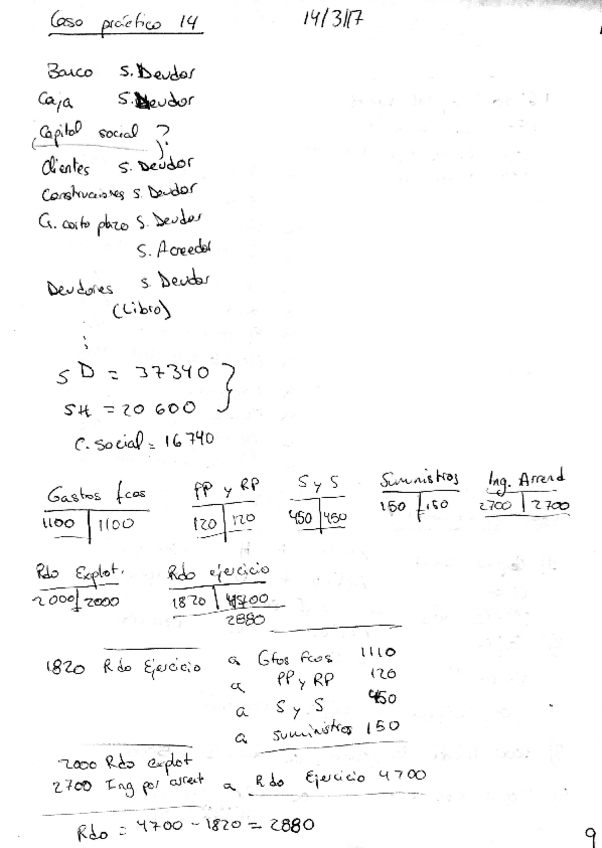 Caso práctico 14 14/3/17
Banco S. Deudor
Caja S. Deudor
¿Capital social?
Clientes S. Deudor
Construcciones S. Deudor
C. corto plazo S. Deudor
S. Acreedor
Deudores S. Deudor
(Libro)
:
SD = 37340
SH = 20 600
C. Social = 16740
Gastos fcos PP y RP S y S Suministros Ing. Arrend
1100 1100 120 120 450 450 150 150 2700 2700
Rdo Explot. Rdo ejercicio
2000 2000 1820 4700
2880
1820 Rdo Ejercicio a Gtos fcos 1110
a PP y RP 120
a S y S 450
a suministros 150
2000 Rdo explot
2700 Ing por arrent a Rdo Ejercicio 4700
Rdo = 4700 - 1820 = 2880
9